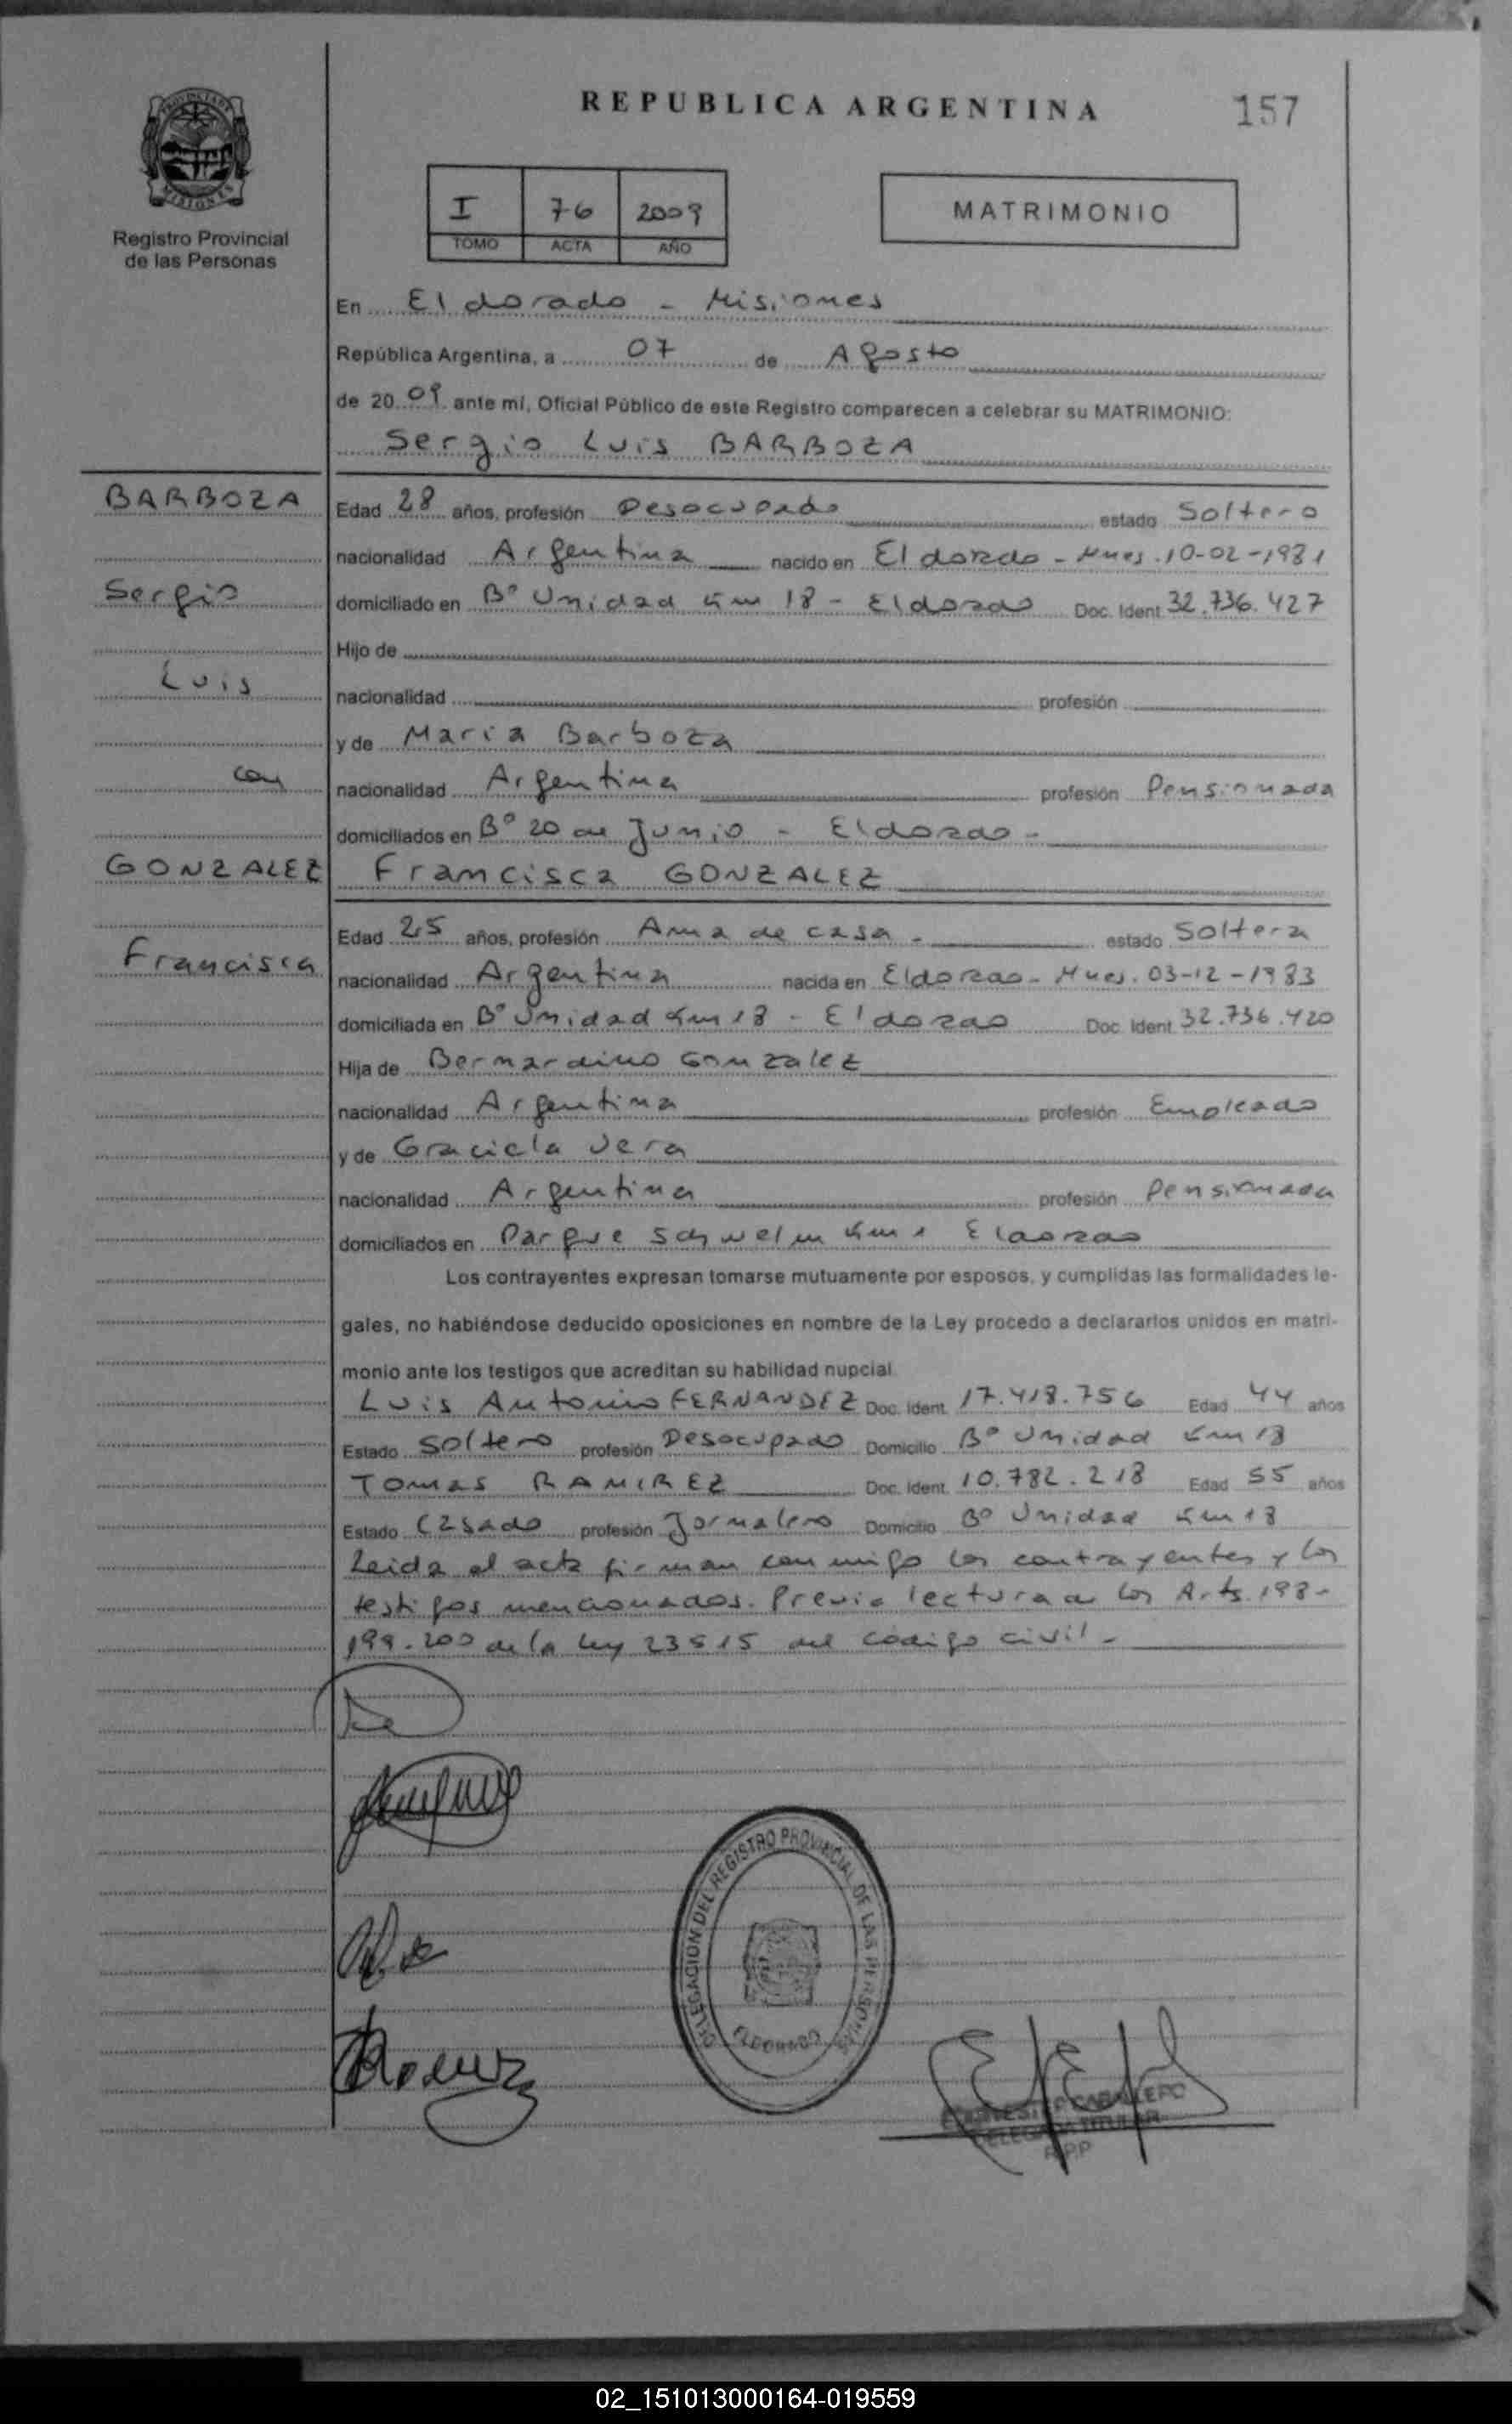 REPUBLICA ARGENTINA
157
PROVINCIA DE MISIONES
Registro Provincial
de las Personas
I 76 2009
TOMO ACTA AÑO
MATRIMONIO
En Eldorado - Misiones
República Argentina, a 07 de Agosto
de 2009 ante mí, Oficial Público de este Registro comparecen a celebrar su MATRIMONIO:
Sergio Luis BARBOZA
BARBOZA
Sergio
Luis
con
GONZALEZ
Francisca
Edad 28 años, profesión Desocupado estado Soltero
nacionalidad Argentina nacido en Eldorado - Mnes. 10-02-1981
domiciliado en Bº Unidad Km 18 - Eldorado Doc. Ident 32.736.427
Hijo de
nacionalidad profesión
y de Maria Barboza
nacionalidad Argentina profesión Pensionada
domiciliados en Bº 20 de Junio - Eldorado -
Francisca GONZALEZ
Edad 25 años, profesión Ama de casa - estado Soltera
nacionalidad Argentina nacida en Eldorado - Mnes. 03-12-1983
domiciliada en Bº Unidad Km 18 - Eldorado Doc. Ident 32.736.420
Hija de Bernardino Gonzalez
nacionalidad Argentina profesión Empleado
y de Graciela Vera
nacionalidad Argentina profesión Pensionada
domiciliados en Parque Schwelm Km 1 Eldorado
Los contrayentes expresan tomarse mutuamente por esposos, y cumplidas las formalidades le-
gales, no habiéndose deducido oposiciones en nombre de la Ley procedo a declararlos unidos en matri-
monio ante los testigos que acreditan su habilidad nupcial
Luis Antonio FERNANDEZ Doc. Ident. 17.418.756 Edad 44 años
Estado Soltero profesión Desocupado Domicilio Bº Unidad Km 18
TOMAS RAMIREZ Doc. Ident. 10.782.218 Edad 55 años
Estado Casado profesión Jornalero Domicilio Bº Unidad Km 18
Leida el acta firman conmigo los contrayentes y los
testigos mencionados. Previa lectura de los Arts. 198-
199-200 de la ley 23515 del codigo civil -
DELEGACION DEL REGISTRO PROVINCIAL DE LAS PERSONAS
ELDORADO
CABALLERO
DELEGADA TITULAR
R.P.P
02_151013000164-019559